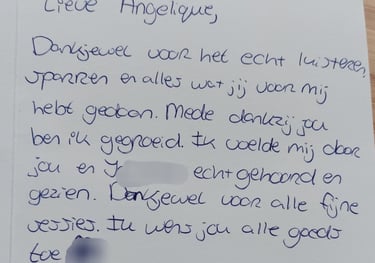 Lieve Angelique,
Dankjewel voor het echt luisteren,
sparren en alles wat jij voor mij
hebt gedaan. Mede dankzij jou
ben ik gegroeid. Ik voelde mij door
jou en J echt gehoord en
gezien. Dankjewel voor alle fijne
sessies. Ik wens jou alle goeds
toe